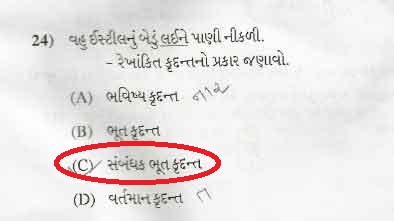 24) વહુ ઈસ્ટીલનું બેડું લઈને પાણી નીકળી.
– રેખાંકિત કૃદન્તનો પ્રકાર જણાવો.
(A) ભવિષ્ય કૃદન્ત નાર
(B) ભૂત કૃદન્ત
(C) સંબંધક ભૂત કૃદન્ત
(D) વર્તમાન કૃદન્ત ત